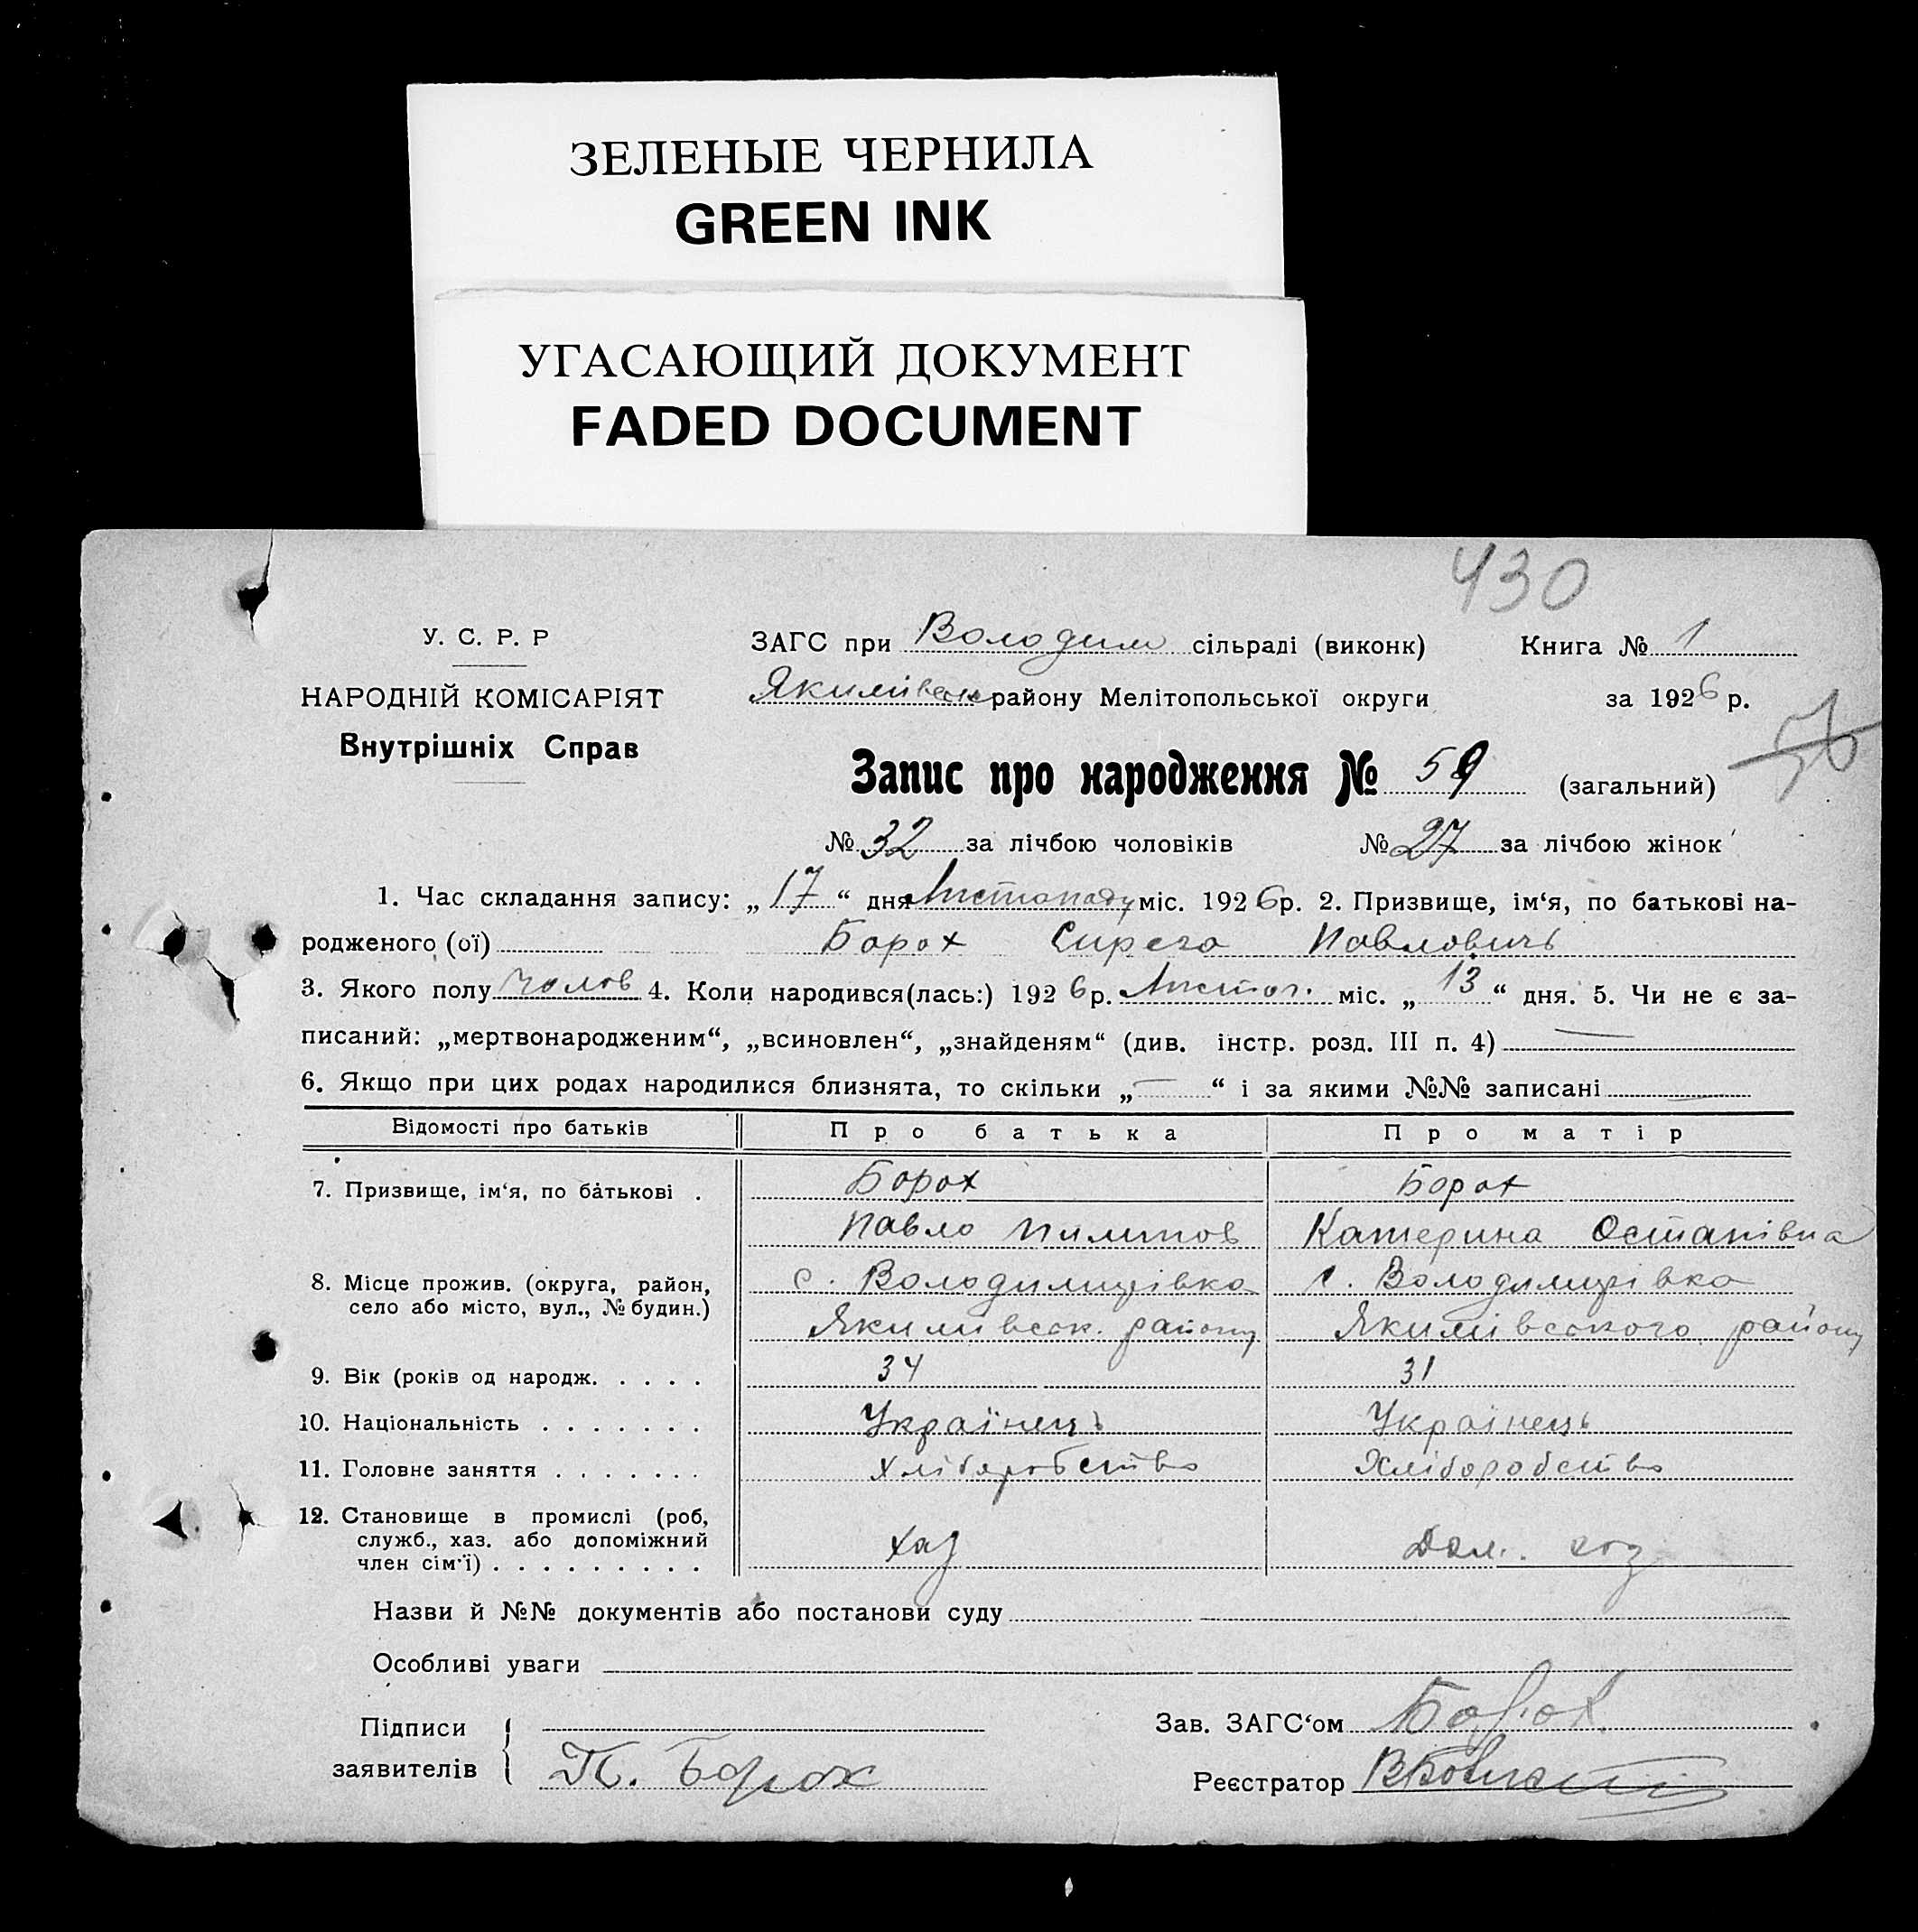 ЗЕЛЕНЫЕ ЧЕРНИЛА
GREEN INK
УГАСАЮЩИЙ ДОКУМЕНТ
FADED DOCUMENT
430
У. С. Р. Р
НАРОДНІЙ КОМІСАРІЯТ
Внутрішніх Справ
ЗАГС при Володим сільраді (виконк) Книга № 1
Якимівськ району Мелітопольської округи за 1926 р.
56
Запис про народження № 59 (загальний)
№ 32 за лічбою чоловіків № 27 за лічбою жінок
1. Час складання запису: „17“ дня Листопаду міс. 1926 р. 2. Призвище, ім‘я, по батькові на-
родженого (ої) Борох Сирего Павловичь
3. Якого полу чолов 4. Коли народився(лась:) 1926 р. Листоп. міс. „13“ дня. 5. Чи не є за-
писаний: „мертвонародженим“, „всиновлен“, „знайденям“ (див. інстр. розд. III п. 4) —
6. Якщо при цих родах народилися близнята, то скільки „—“ і за якими №№ записані —
Відомості про батьків Про батька Про матір
7. Призвище, ім‘я, по батькові . Борох Борох
Павло Пилипов Катерина Остапівна
8. Місце прожив. (округа, район, с. Володимирівка с. Володимирівка
село або місто, вул., № будин.) Якимівськ. району Якимівського району
9. Вік (років од народж. . . . . 34 31
10. Національність . . . . . . . Українець Українець
11. Головне заняття . . . . . . . хліборобство Хліборобство
12. Становище в промислі (роб,
служб., хаз. або допоміжний
член сім‘ї) . . . . . . . . . хаз Дом. хоз
Назви й №№ документів або постанови суду
Особливі уваги
Підписи
заявителів П. Борох
Зав. ЗАГС‘ом Борох
Реєстратор